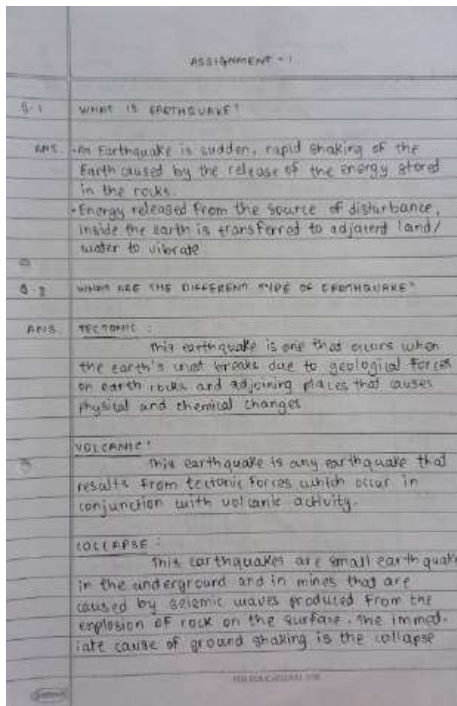 ASSIGNMENT - 1
Q.1 WHAT IS EARTHQUAKE?
ANS. • An Earthquake is sudden, rapid shaking of the
Earth caused by the release of the energy stored
in the rocks.
• Energy released from the source of disturbance,
inside the earth is transferred to adjacent land/
water to vibrate
Q.2 WHAT ARE THE DIFFERENT TYPE OF EARTHQUAKE"
ANS TECTONIC :
This earthquake is one that occurs when
the earth's crust breaks due to geological forces
on earth rocks and adjoining places that causes
physical and chemical changes
VOLCANIC :
This earthquake is any earthquake that
results from tectonic forces which occur in
conjunction with volcanic activity.
COLLAPSE :
This earthquakes are small earthquake
in the underground and in mines that are
caused by seismic waves produced from the
explosion of rock on the surface. The immed-
iate cause of ground shaking is the collapse
FOR EDUCATIONAL USE